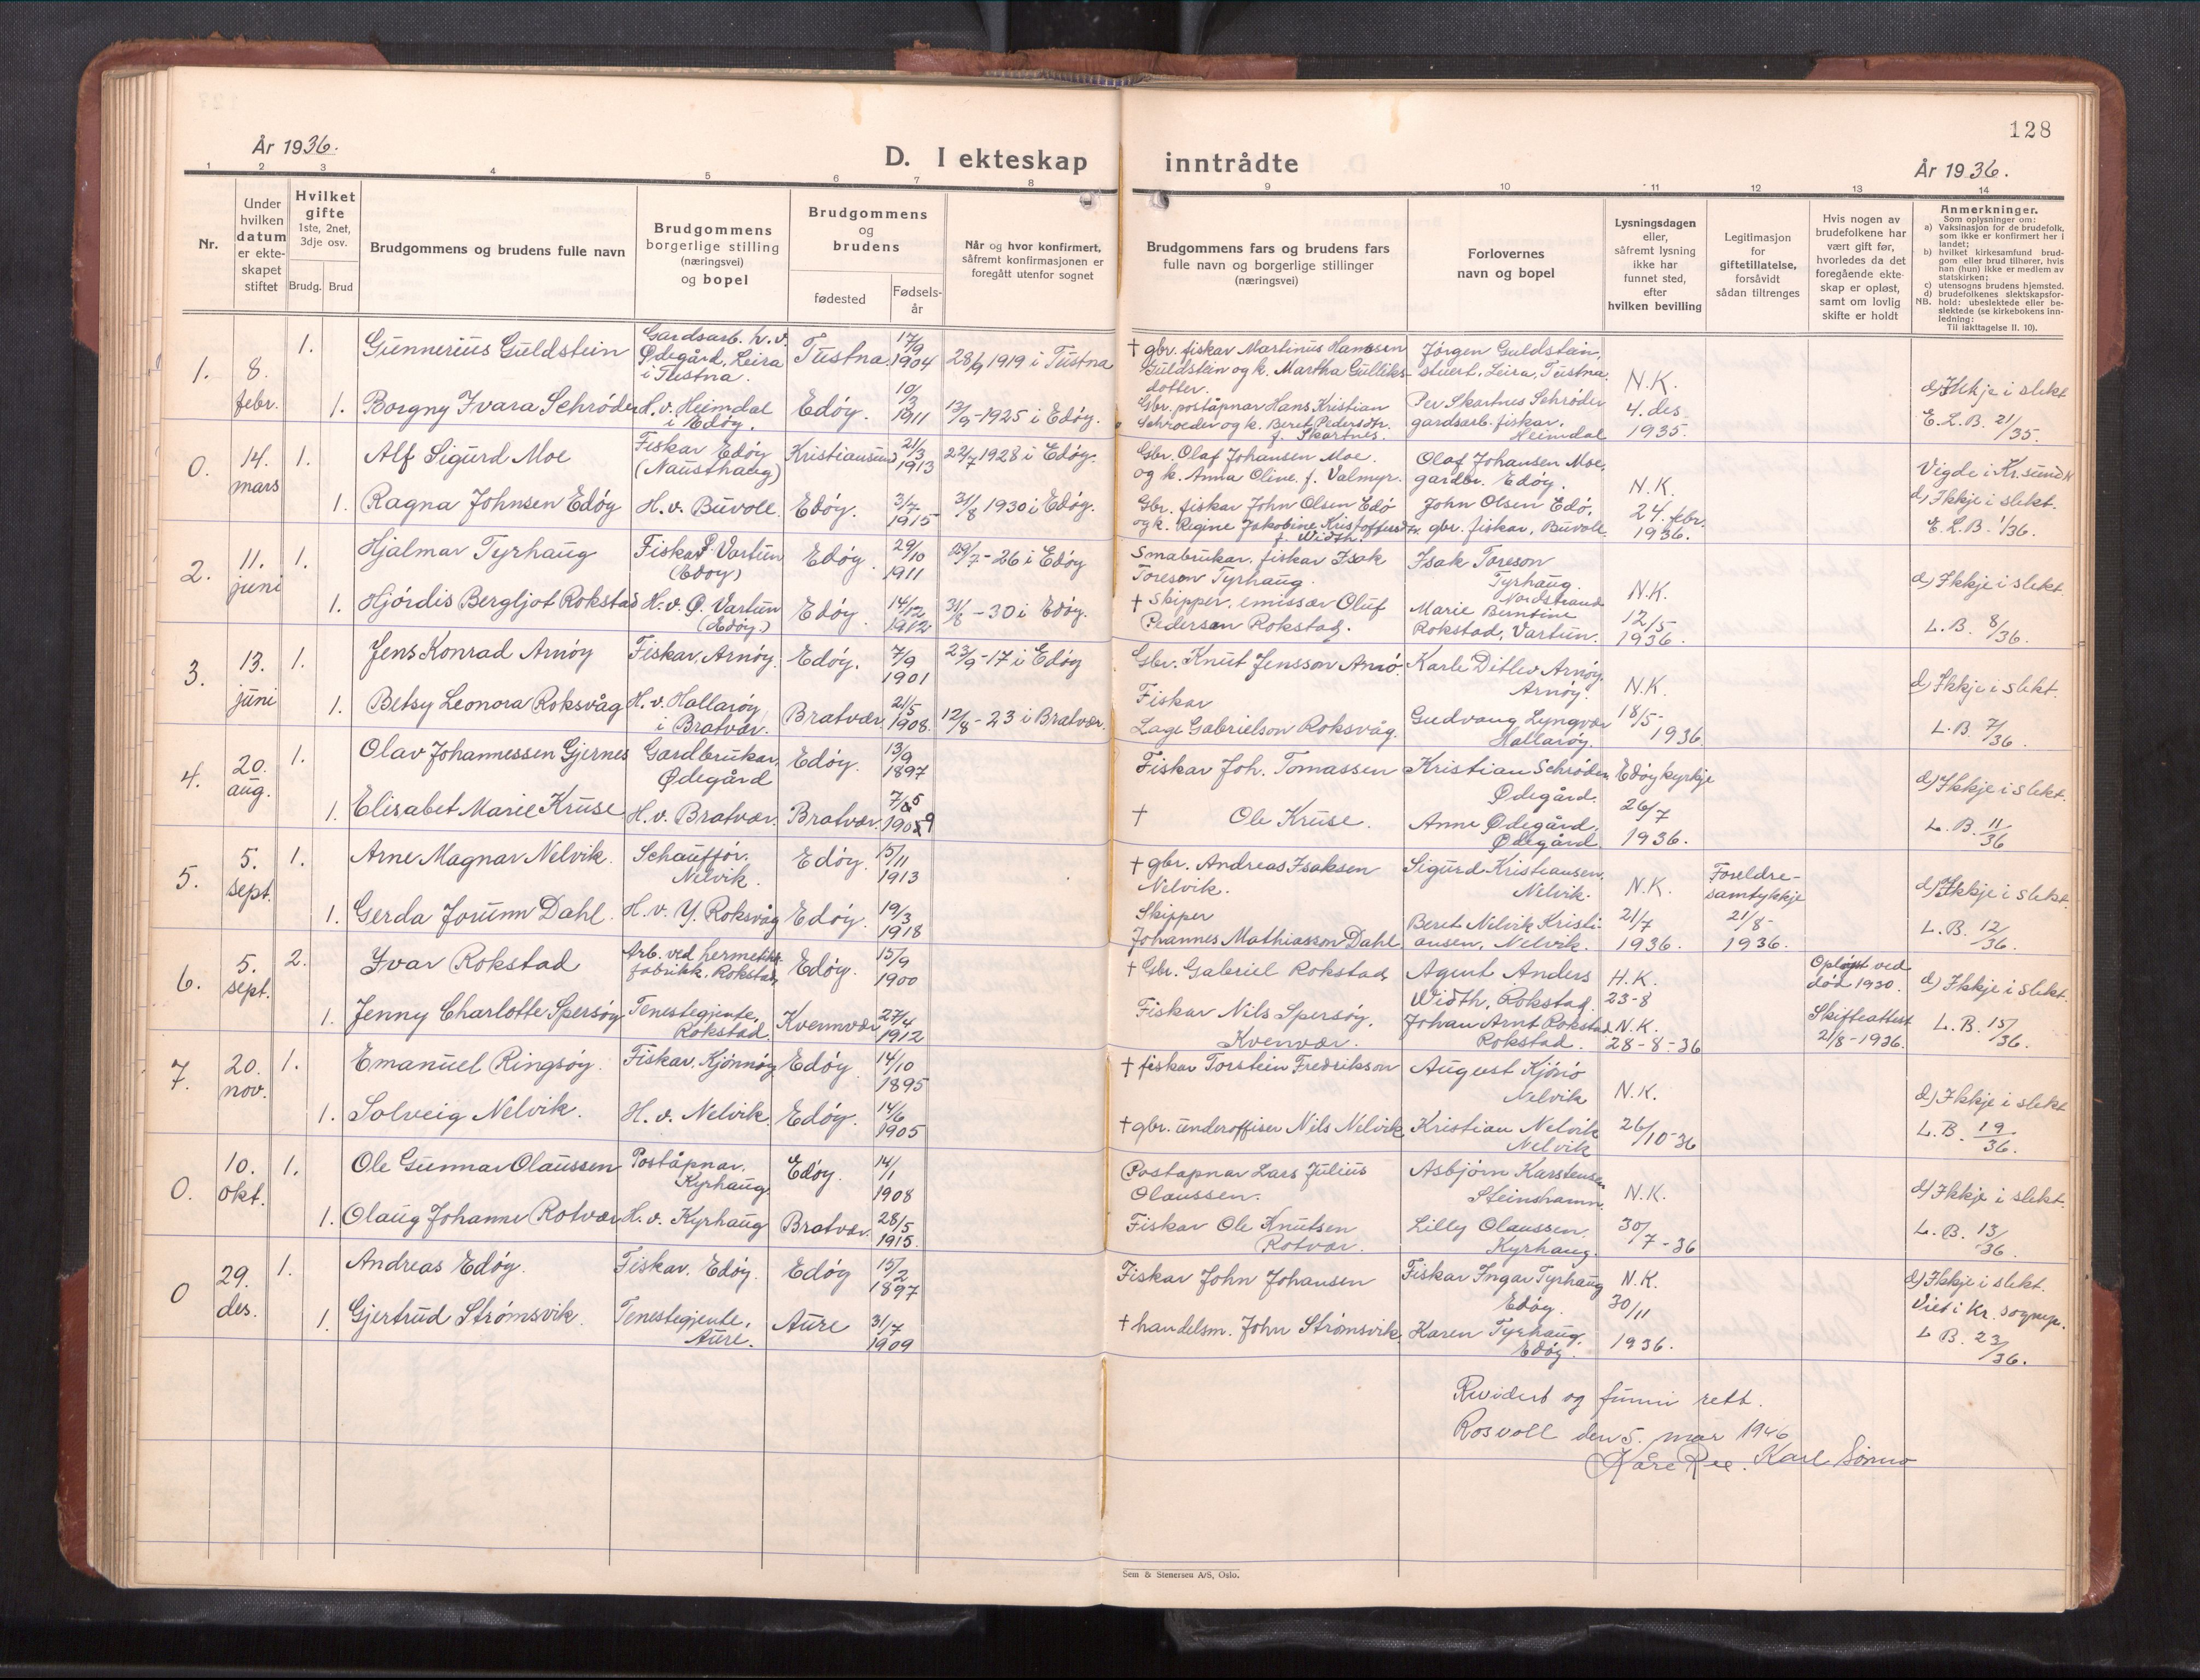 128
År 1936.
D. I ekteskap inntrådte
År 1936.
1 2 3 4 5 6 7 8 9 10 11 12 13 14
Nr.
Under hvilken datum er ekteskapet stiftet
Hvilket gifte 1ste, 2net, 3dje osv.
Brudg. Brud
Brudgommens og brudens fulle navn
Brudgommens borgerlige stilling (næringsvei) og bopel
Brudgommens og brudens
fødested
Fødselsår
Når og hvor konfirmert, såfremt konfirmasjonen er foregått utenfor sognet
Brudgommens fars og brudens fars fulle navn og borgerlige stillinger (næringsvei)
Forlovernes navn og bopel
Lysningsdagen eller, såfremt lysning ikke har funnet sted, efter hvilken bevilling
Legitimasjon for giftetillatelse, forsåvidt sådan tiltrenges
Hvis nogen av brudefolkene har vært gift før, hvorledes da det foregående ekteskap er opløst, samt om lovlig skifte er holdt
Anmerkninger.
Som oplysninger om:
a) Vaksinasjon for de brudefolk, som ikke er konfirmert her i landet;
b) hvilket kirkesamfund brudgom eller brud tilhører, hvis han (hun) ikke er medlem av statskirken;
c) utensogns brudens hjemsted.
d) brudefolkenes slektskapsforhold: ubeslektede eller beslektede (se kirkebokens innledning:
NB. Til iakttagelse II. 10).
1. 8. febr. 1. Gunnerius Guldstein Gardsarb. h.v. Ødegård, Leira i Tustna. Tustna 17/9 1904 28/9 1919 i Tustna † gbr. fiskar Martinus Hansen Guldstein og k. Martha Gulliksdotter. Jørgen Guldstein, stuert, Leira, Tustna. N.K. 4. des 1935. d) Ikkje i slekt
1. Borgny Ivara Schrøder H. v. Heimdal i Edøy. Edøy. 10/3 1911 13/9-1925 i Edøy. Gbr. poståpnar Hans Kristian Schroeder og k. Beret Pedersdtr. f. Skartnes. Per Skartnes Schrøder gardsarb. fiskar, Heimdal E. L. B. 21/35.
0. 14. mars 1. Alf Sigurd Moe Fiskar Edøy (Nausthaug) Kristiansund 21/3 1913 22/7 1928 i Edøy. Gbr. Olaf Johansen Moe. og k. Anna Oline f. Valmyr. Olaf Johansen Moe, gardbr. Edøy. N.K. 24. febr. 1936. Vigde i Kr.sund N d) Ikkje i slekt.
1. Ragna Johnsen Edøy H. v. Buvoll. Edøy. 3/7 1915 31/8 1930 i Edøy. Gbr. fiskar John Olsen Edø og k. Regine Jakobine Kristoffersdtr. f. Width. John Olsen Edø, gbr. fiskar, Buvoll E. L. B. 1/36.
2. 11. juni 1. Hjalmar Tyrhaug Fiskar Vartun (Edøy) Edøy 29/10 1911 29/7-26 i Edøy Småbrukar, fiskar Isak Toreson Tyrhaug. Isak Toreson Tyrhaug. Nordstrand N.K. 12/5 1936. d) Ikkje i slekt
1. Hjørdis Bergljot Rokstad H. v. Ø. Vartun (Edøy) Edøy 14/12 1912 31/8-30 i Edøy. † Skipper, emissær Oluf Pedersen Rokstad. Marie Berntine Rokstad, Vartun. L.B. 8/36.
3. 13. juni 1. Jens Konrad Arnøy Fiskar, Arnøy. Edøy. 7/9 1901 23/9-17 i Edøy Gbr. Knut Jensson Arnø. Karle Ditlev Arnøy. Arnøy. N.K. 18/5-1936 d) Ikkje i slekt.
1. Betsy Leonora Roksvåg H. v. Hallarøy i Bratvær. Bratvær 21/5 1908. 12/8-23 i Bratvær. Fiskar Lage Gabrielson Roksvåg. Gudvang Lyngvær Hallarøy. L.B. 7/36.
4. 20. aug. 1. Olav Johannessen Gjernes Gardbrukar, Ødegård Edøy. 13/9 1897 Fiskar Joh. Tomassen Kristian Schrøder Ødegård. Edøy kyrkje 26/7 1936. d) Ikkje i slekt.
1. Elisabet Marie Kruse H. v. Bratvær. Bratvær. 7/5 1909 † Ole Kruse. Anne Ødegård. Ødegård. L.B. 11/36
5. 5. sept. 1. Arne Magnar Nelvik. Schauffør. Nelvik. Edøy 15/11 1913 † gbr. Andreas Isaksen Nelvik. Sigurd Kristiansen. Nelvik. N.K. 21/7 1936. Foreldresamtykkje 21/8-1936. d) Ikkje i slekt.
1. Gerda Jorunn Dahl. H. v. Y. Roksvåg Edøy. 19/3 1918 Skipper Johannes Mathiasson Dahl Beret Nelvik Kristiansen, Nelvik. L.B. 12/36.
6. 5. sept. 2. Ivar Rokstad Arb. ved hermetikkfabrikk, Rokstad Edøy. 15/9 1900 † Gbr. Gabriel Rokstad Agent Anders Width, Rokstad. H.K. 23-8 Opløyst ved død 1930. d) Ikkje i slekt.
1. Jenny Charlotte Spersøy Tenestegjente, Rokstad. Kvennvær 27/4 1912 Fiskar Nils Spersøy, Kvenvær. Johan Arnt Rokstad Rokstad. N.K. 28-8-36 Skifteattest 21/8-1936. L.B. 15/36.
7. 20. nov. 1. Emanuel Ringsøy. Fiskar, Kjønnøy Edøy 14/10 1895 † fiskar Torstein Fredrikson August Kjønø Nelvik N.K. 26/10-36 d) Ikkje i slekt
1. Solveig Nelvik. H. v. Nelvik. Edøy. 14/6 1905 † gbr. underoffiser Nils Nelvik Kristian Nelvik Nelvik L.B. 19/36.
0. 10. okt. 1. Ole Gunnar Olaussen Poståpnar. Kyrhaug Edøy. 14/1 1908 Postapnar Lars Julius Olaussen. Asbjørn Karstensen Steinshamn N.K. 30/7-36 d) Ikkje i slekt.
1. Olaug Johanne Rotvær H. v. Kyrhaug Bratvær. 28/5 1915. Fiskar Ole Knutsen Rotvær. Lilly Olaussen. Kyrhaug. L.B. 13/36.
0 29. des. 1. Andreas Edøy. Fiskar. Edøy. Edøy 15/2 1897 Fiskar John Johansen Fiskar Ingar Tyrhaug Edøy. N.K. 30/11 1936. d) Ikkje i slekt. Viet i Kr.
1. Gjertrud Strømsvik. Tenestegjente, Aure. Aure 31/7 1909 † handelsm. John Strømsvik. Karen Tyrhaug. Edøy. L B. 23/36.
Revidert og funni rett.
Rosvoll den 5. mar 1946
Kåre Ree. Karl
Sem & Stenersen A/S, Oslo.